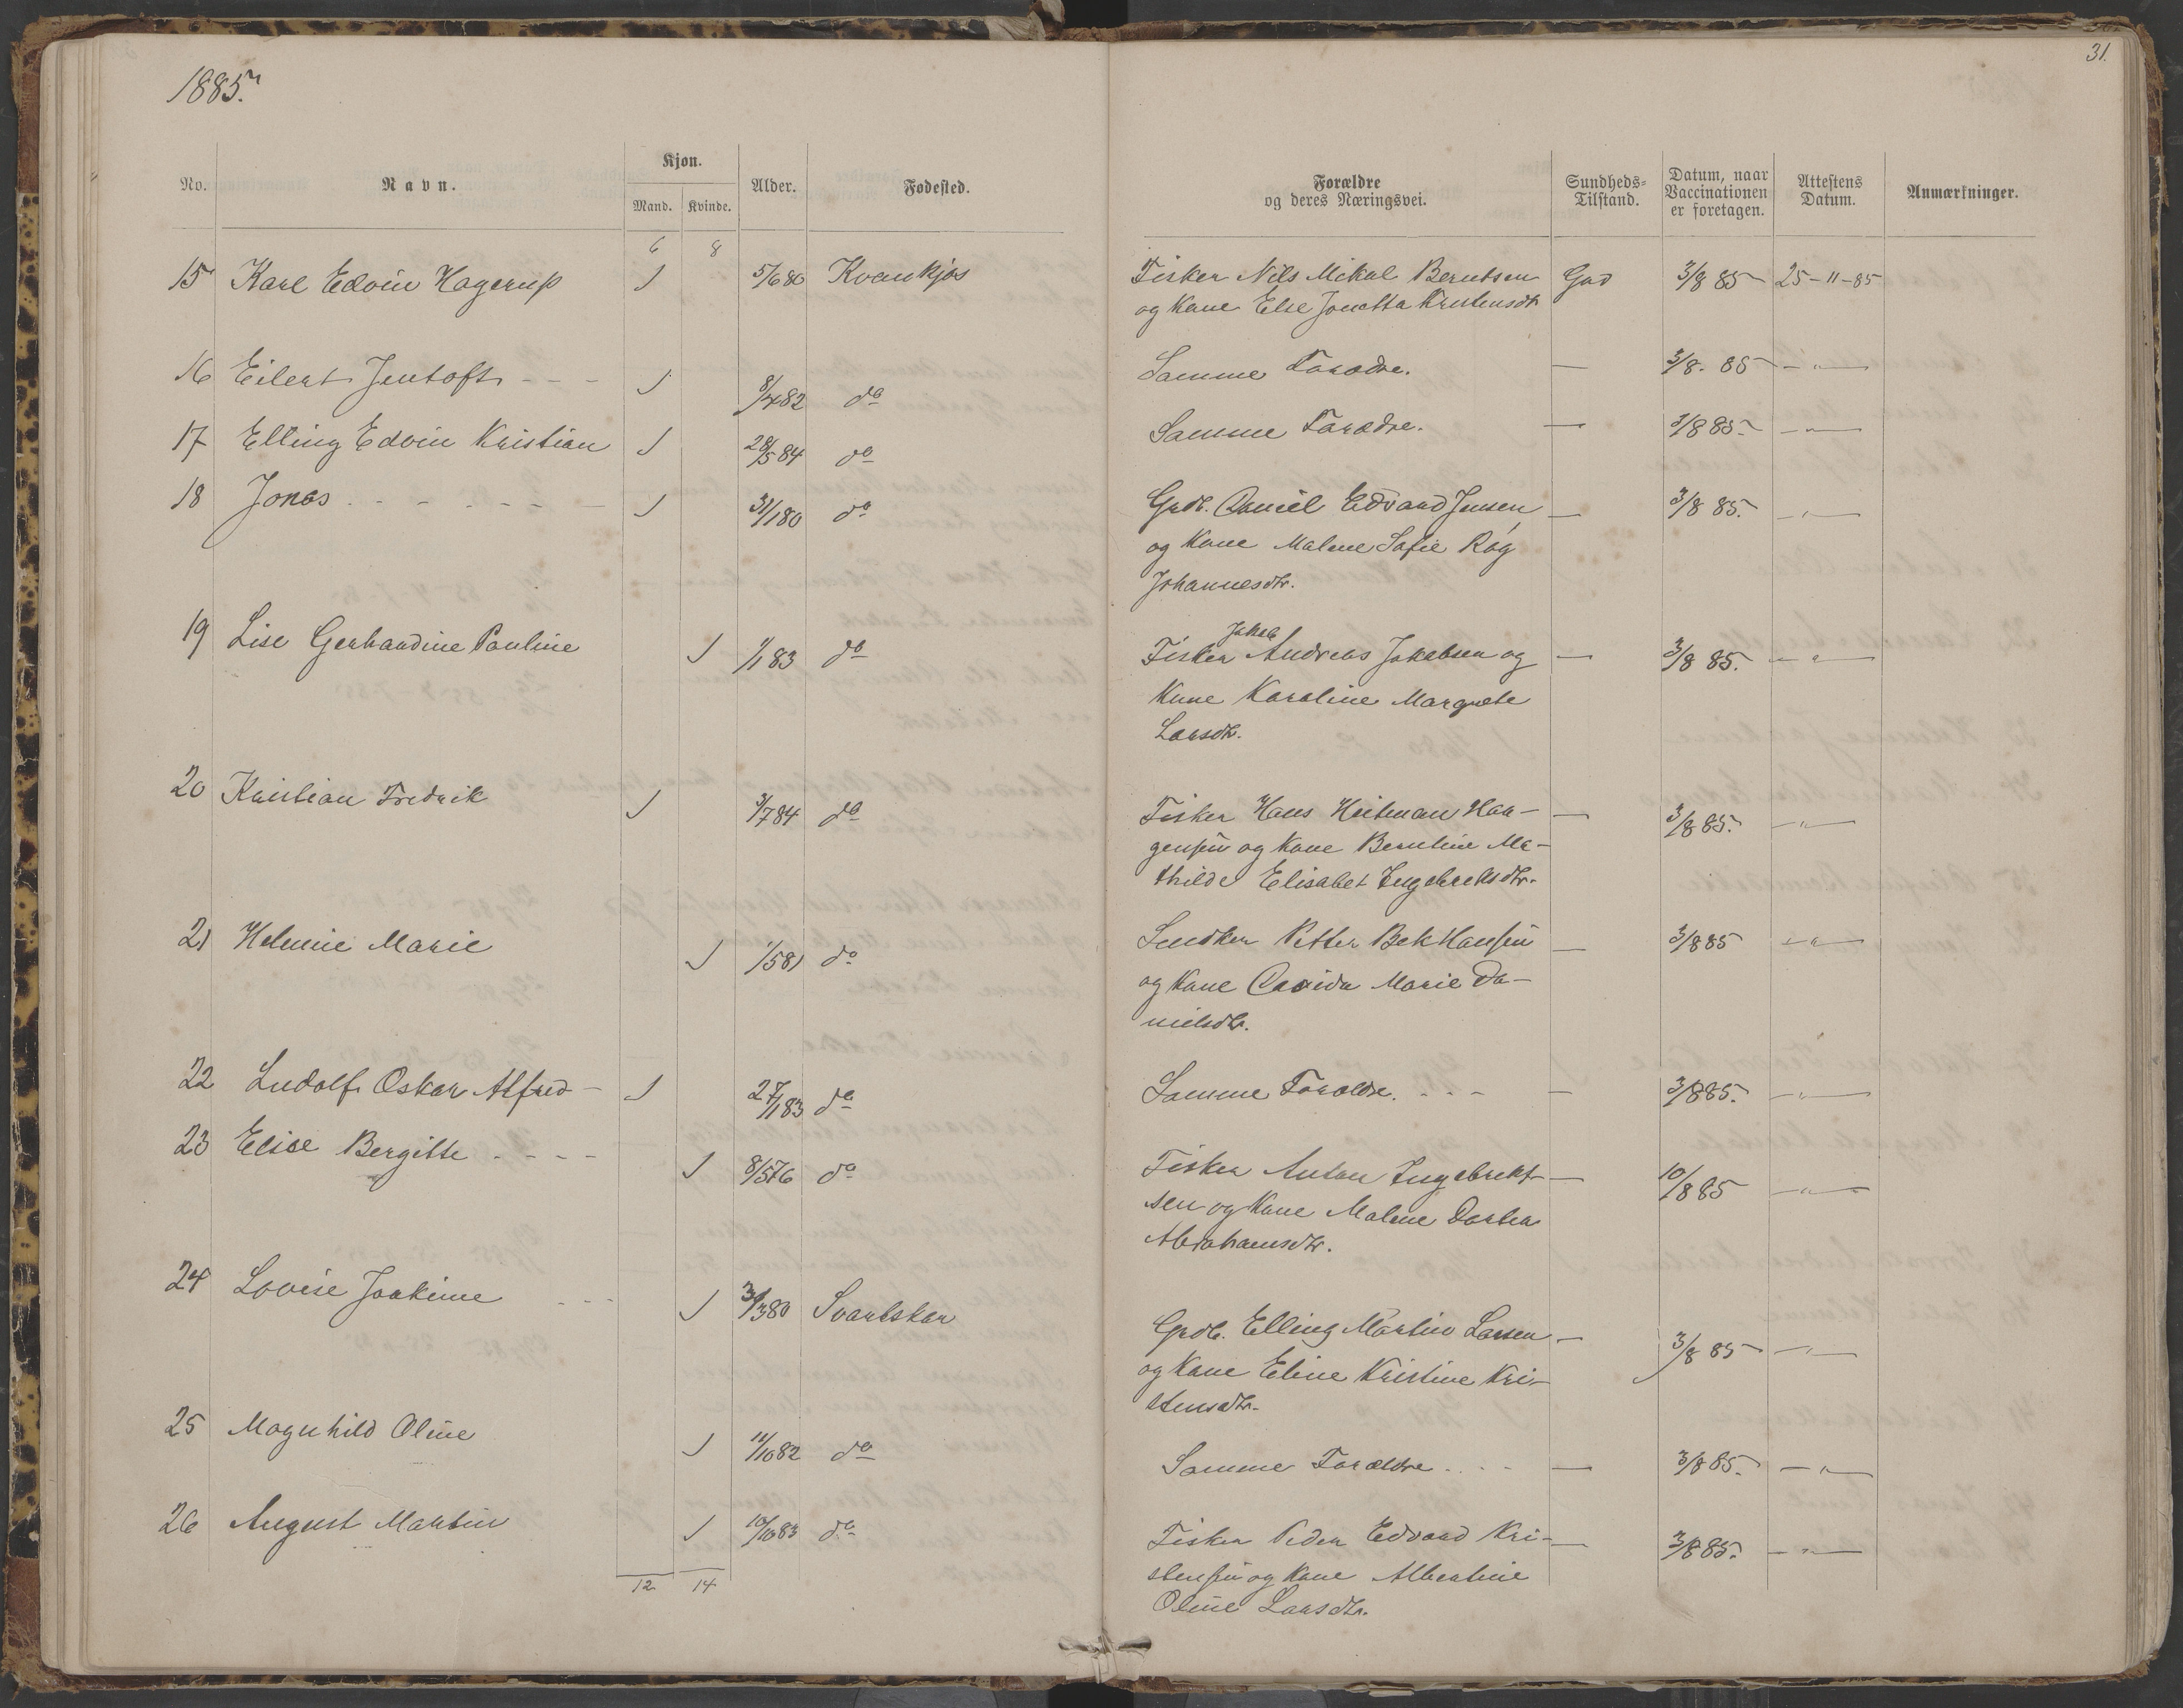 31.
1885.
No. Navn. Kjøn. Alder. Fødested. Forældre og deres Næringsvei. Sundheds-Tilstand. Datum, naar Vaccinationen er foretagen. Attestens Datum. Anmærkninger.
Mand. Kvinde.
6 8
15 Karl Edvin Hagerup 1 5/6 80 Kvankjos Fisker Nils Mikal Berntsen God 3/8 85 25-11-85
og Kone Else Jonetta Kristensdtr
16 Eilert Jentoft - - - 1 8/4 82 do Samme Forædre. — 3/8. 85 — " —
17 Elling Edvin Kristian 1 28/5 84 do Samme Forædre. — 3/8 85. — " —
18 Jonas - - - - - - 1 31/1 80 do Grdb. Daniel Edvard Jensen — 3/8 85. — " —
og Kone Malene Sofie Røg
Johannesdtr.
19 Lise Gerhardine Pauline 1 1/1 83 do Fisker Jakob Andreas Jakobsen og — 3/8 85. — " —
Kone Karoline Margrete
Larsdtr.
20 Kristian Fredrik 1 3/7 84 do Fisker Hans Heitman Haa- — 3/8 85. — " —
gensen og Kone Berntine Ma-
thilde Elisabet Ingebrektsdtr.
21 Helmine Marie 1 1/5 81 do Smdker Petter Bek Hansen — 3/8 85 — " —
og Kone Marie Da-
nielsdtr.
22 Ludolf Oskar Alfred - 1 27/1 83 do Samme Forældre. - - - — 3/8 85. — " —
23 Elise Bergitte - - - - 1 8/5 76 do Fisker Anton Ingebrekt- — 10/8 85 — " —
sen og Kone Malene Dortea
Abrahamsdtr.
24 Lovise Joakime - - - 1 3/3 80 Svartskar Grdb. Elling Martin Larsen — 3/8 85 — " —
og Kone Eline Kristine Kri-
stensdtr.
25 Magnhild Oline 1 11/10 82 do Samme Forældre - - - — 3/8 85. — " —
26 August Martin 1 10/10 83 do Fisker Peder Edvard Kri- — 3/8 85. — " —
stensen og Kone Albertine
Oline Larsdtr.
12 14